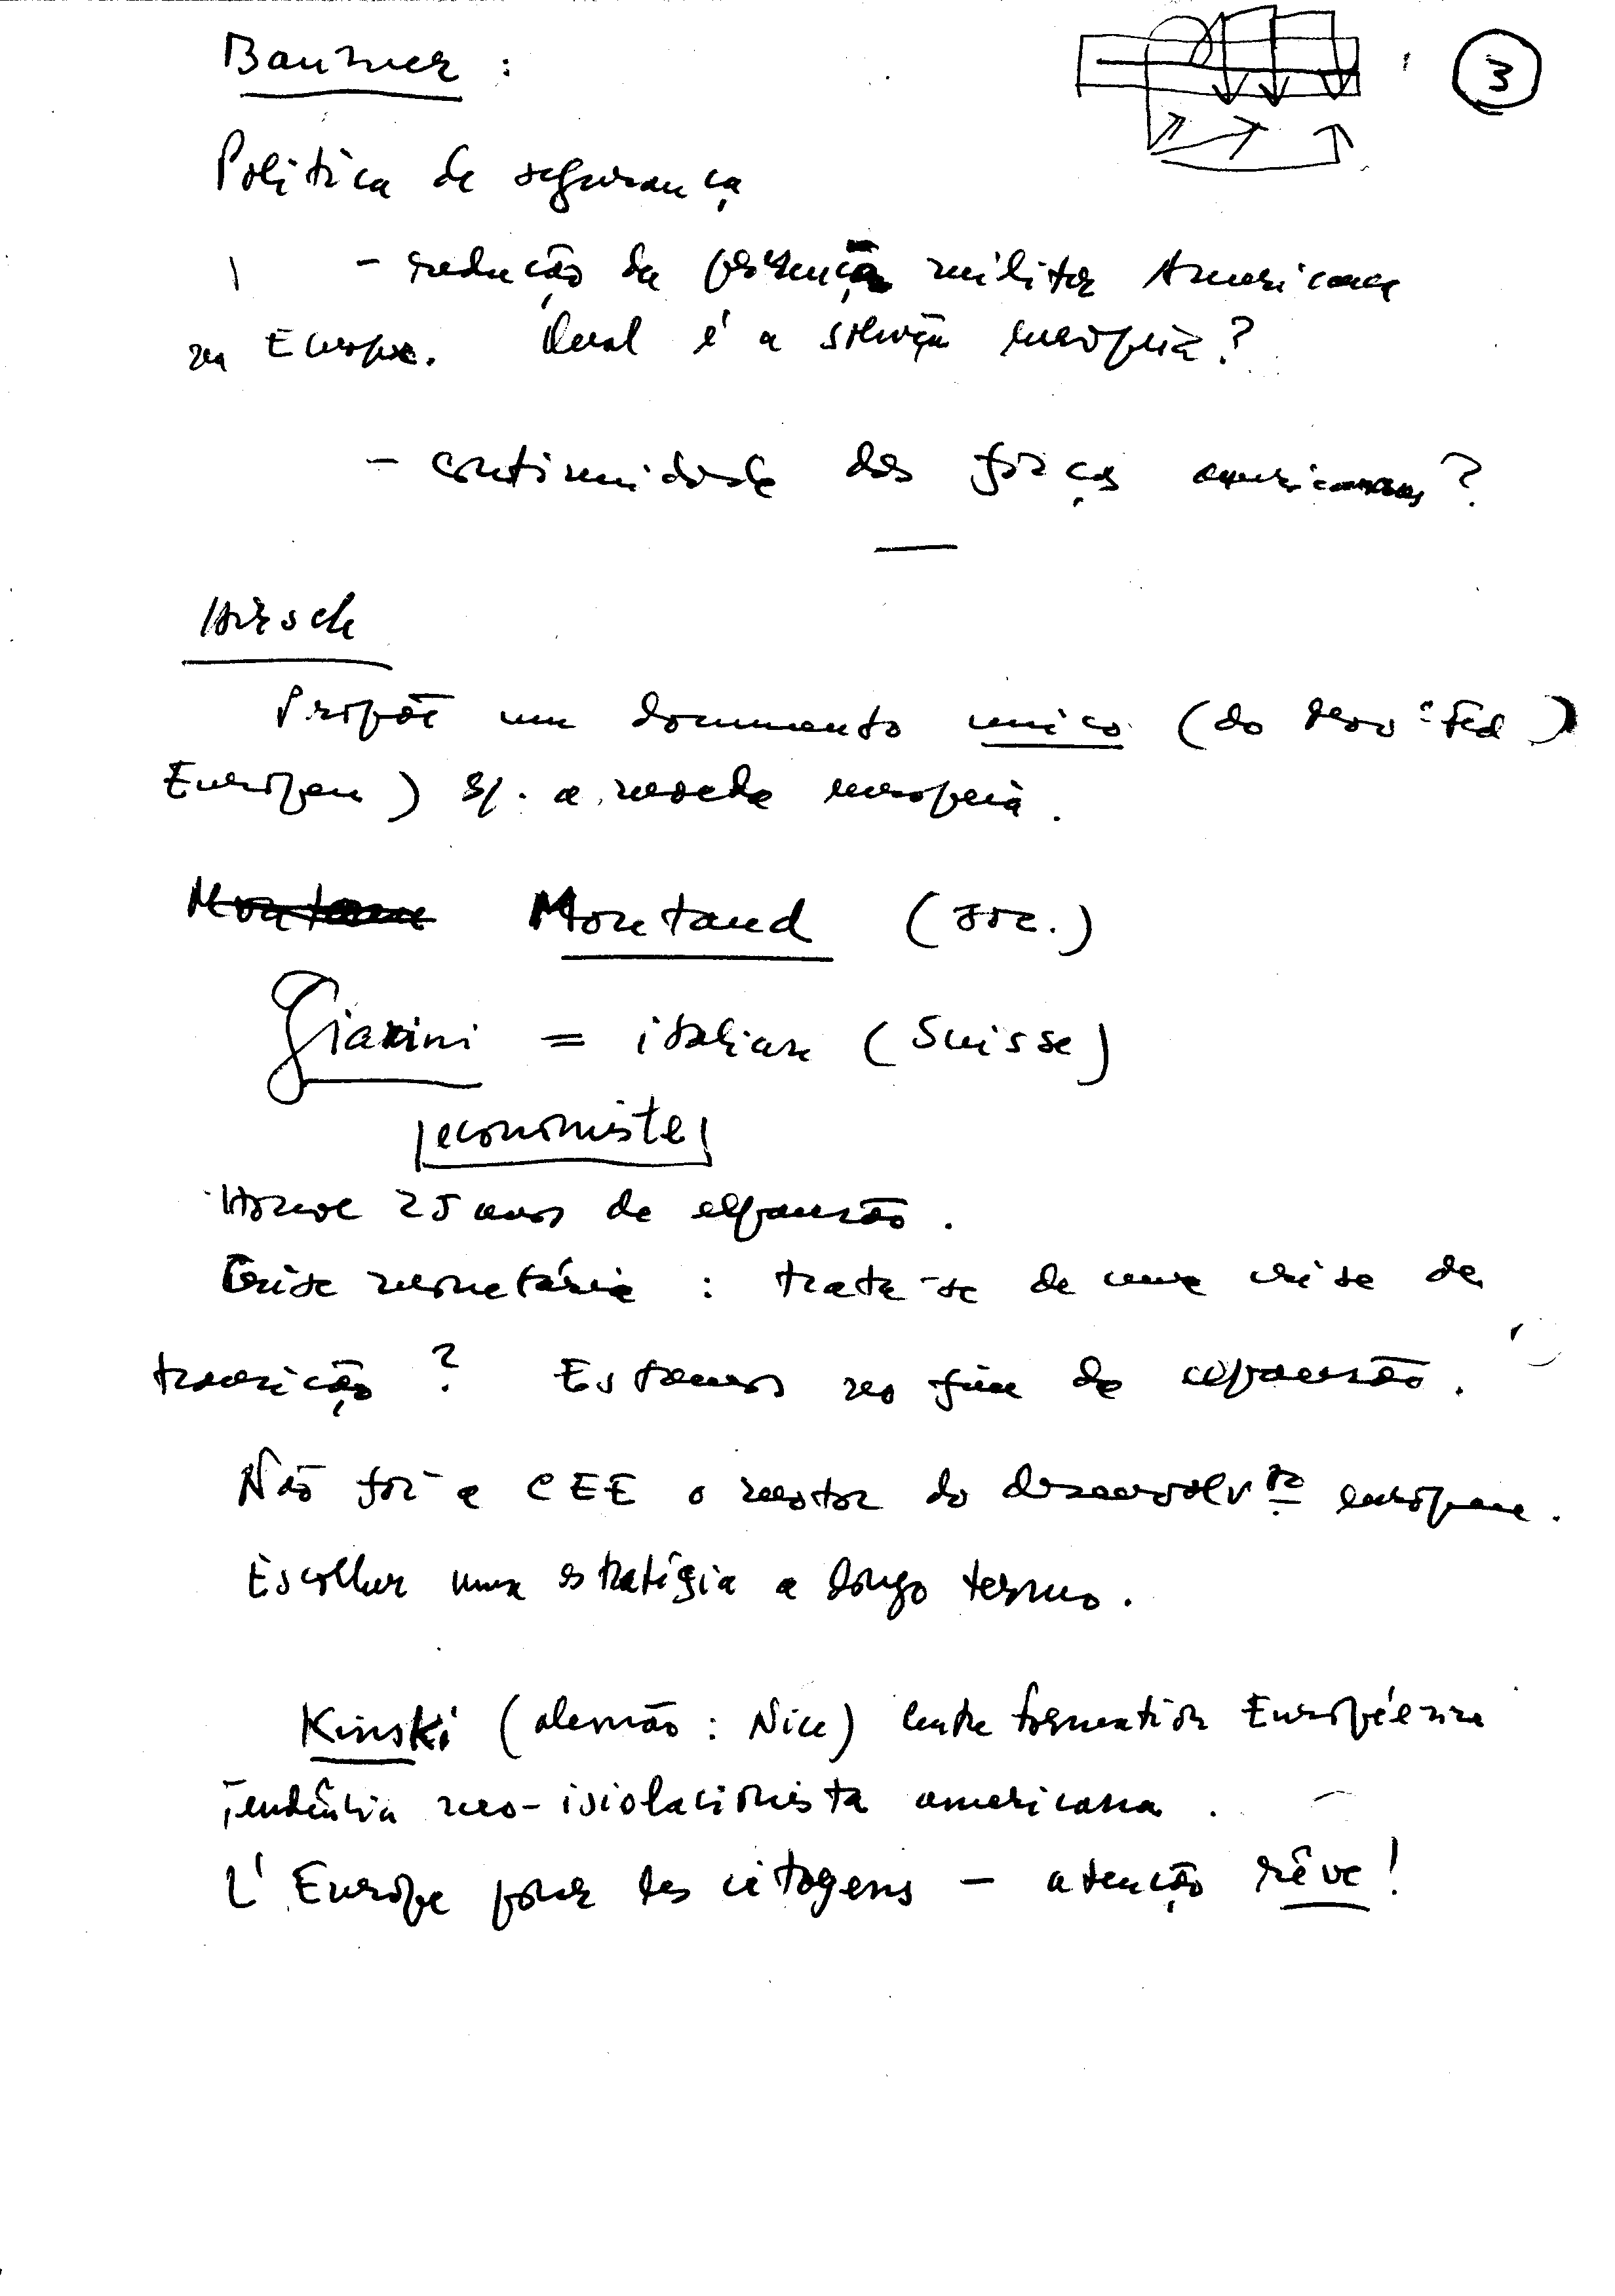 3
Baumer :
Politica de segurança
- redução da presença militar Americana
na Europa. Qual é a solução europeia?
- continuidade das forças americanas?
Hirsch
Propõe um documento unico (do Mov. Fed)
Europeu) s/. a moeda europeia.
Montand (soc.)
Giarini = italian (Suisse)
economiste
Houve 25 anos de expansão.
Crise monetária : trata-se de uma crise de
transição ? Estamos no fim da expansão.
Não foi a CEE o motor do desenvolvto europeu.
Escolher uma estratégia a longo termo.
Kinski (alemão : Nice) Centre formation Européenne
Tendência neo-isiolacionista americana.
L'Europe pour les citoyens - atenção rêve!